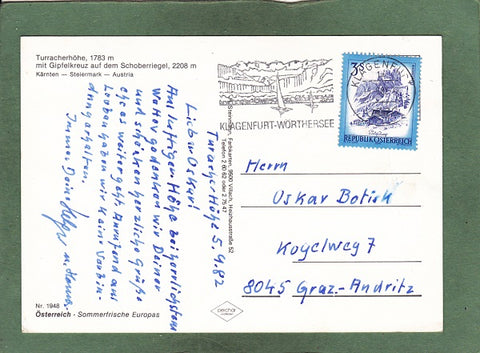 Turracherhöhe, 1783 m
mit Gipfelkreuz auf dem Schoberriegel, 2208 m
Kärnten — Steiermark — Austria
Turacher Höhe 5.9.82
Lieber Oskar!
Auf luftiger Höhe bei herrlichstem
Wetter gedenken wir Deiner
und schicken herzliche Grüße
weiter geht. Anrufend aus
Leoben haben wir keine Verbin-
dung erhalten.
Immer Dein
Nr. 1948
Österreich - Sommerfrische Europas
Farbkarte, 9500 Villach,
52
KLAGENFURT-WÖRTHERSEE
KLAGENFURT
3 S
REPUBLIK ÖSTERREICH
Herrn
Oskar Botisk
Kogelweg 7
8045 Graz-Andritz